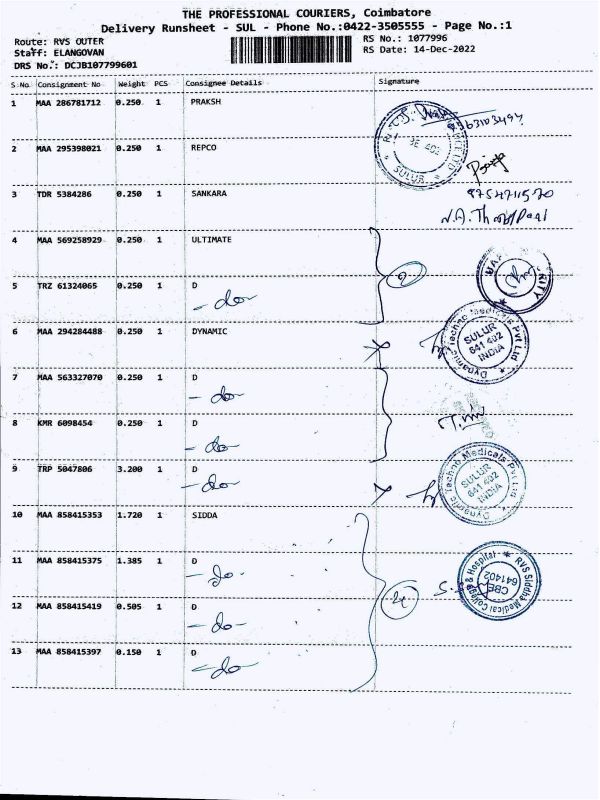 THE PROFESSIONAL COURIERS, Coimbatore
Delivery Runsheet - SUL - Phone No.:0422-3505555 - Page No.:1
Route: RVS OUTER
Staff: ELANGOVAN
DRS No.: DCJB107799601
RS No.: 1077996
RS Date: 14-Dec-2022
S No Consignment No Weight PCS Consignee Details Signature
1 MAA 286781712 0.250 1 PRAKSH
2 MAA 295398021 0.250 1 REPCO
SULUR
3 TDR 5384286 0.250 1 SANKARA
4 MAA 569258929 0.250 1 ULTIMATE
5 TRZ 61324065 0.250 1 D
- do -
6 MAA 294284488 0.250 1 DYNAMIC
Dynamic Techno Medicals Pvt Ltd
SULUR
641 402
INDIA
7 MAA 563327070 0.250 1 D
- do -
8 KMR 6098454 0.250 1 D
- do -
9 TRP 5047806 3.200 1 D
- do -
Dynamic Techno Medicals Pvt Ltd
SULUR
641 402
INDIA
10 MAA 858415353 1.720 1 SIDDA
11 MAA 858415375 1.385 1 D
- do -
RVS Siddha Medical College & Hospital
CBE
641402
12 MAA 858415419 0.505 1 D
- do -
13 MAA 858415397 0.150 1 D
- do -